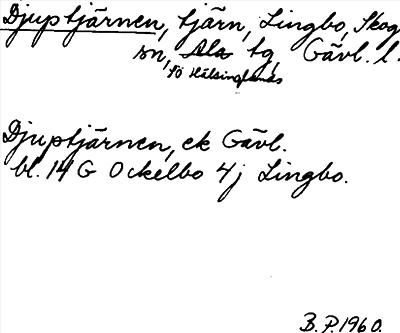 Djuptjärnen, tjärn, Lingbo, Skog
sn, Ala tg, Gävl. l.
Sö Hälsinglands
Djuptjärnen, ek Gävl.
bl. 14 G Ockelbo 4j Lingbo.
B.P.1960.